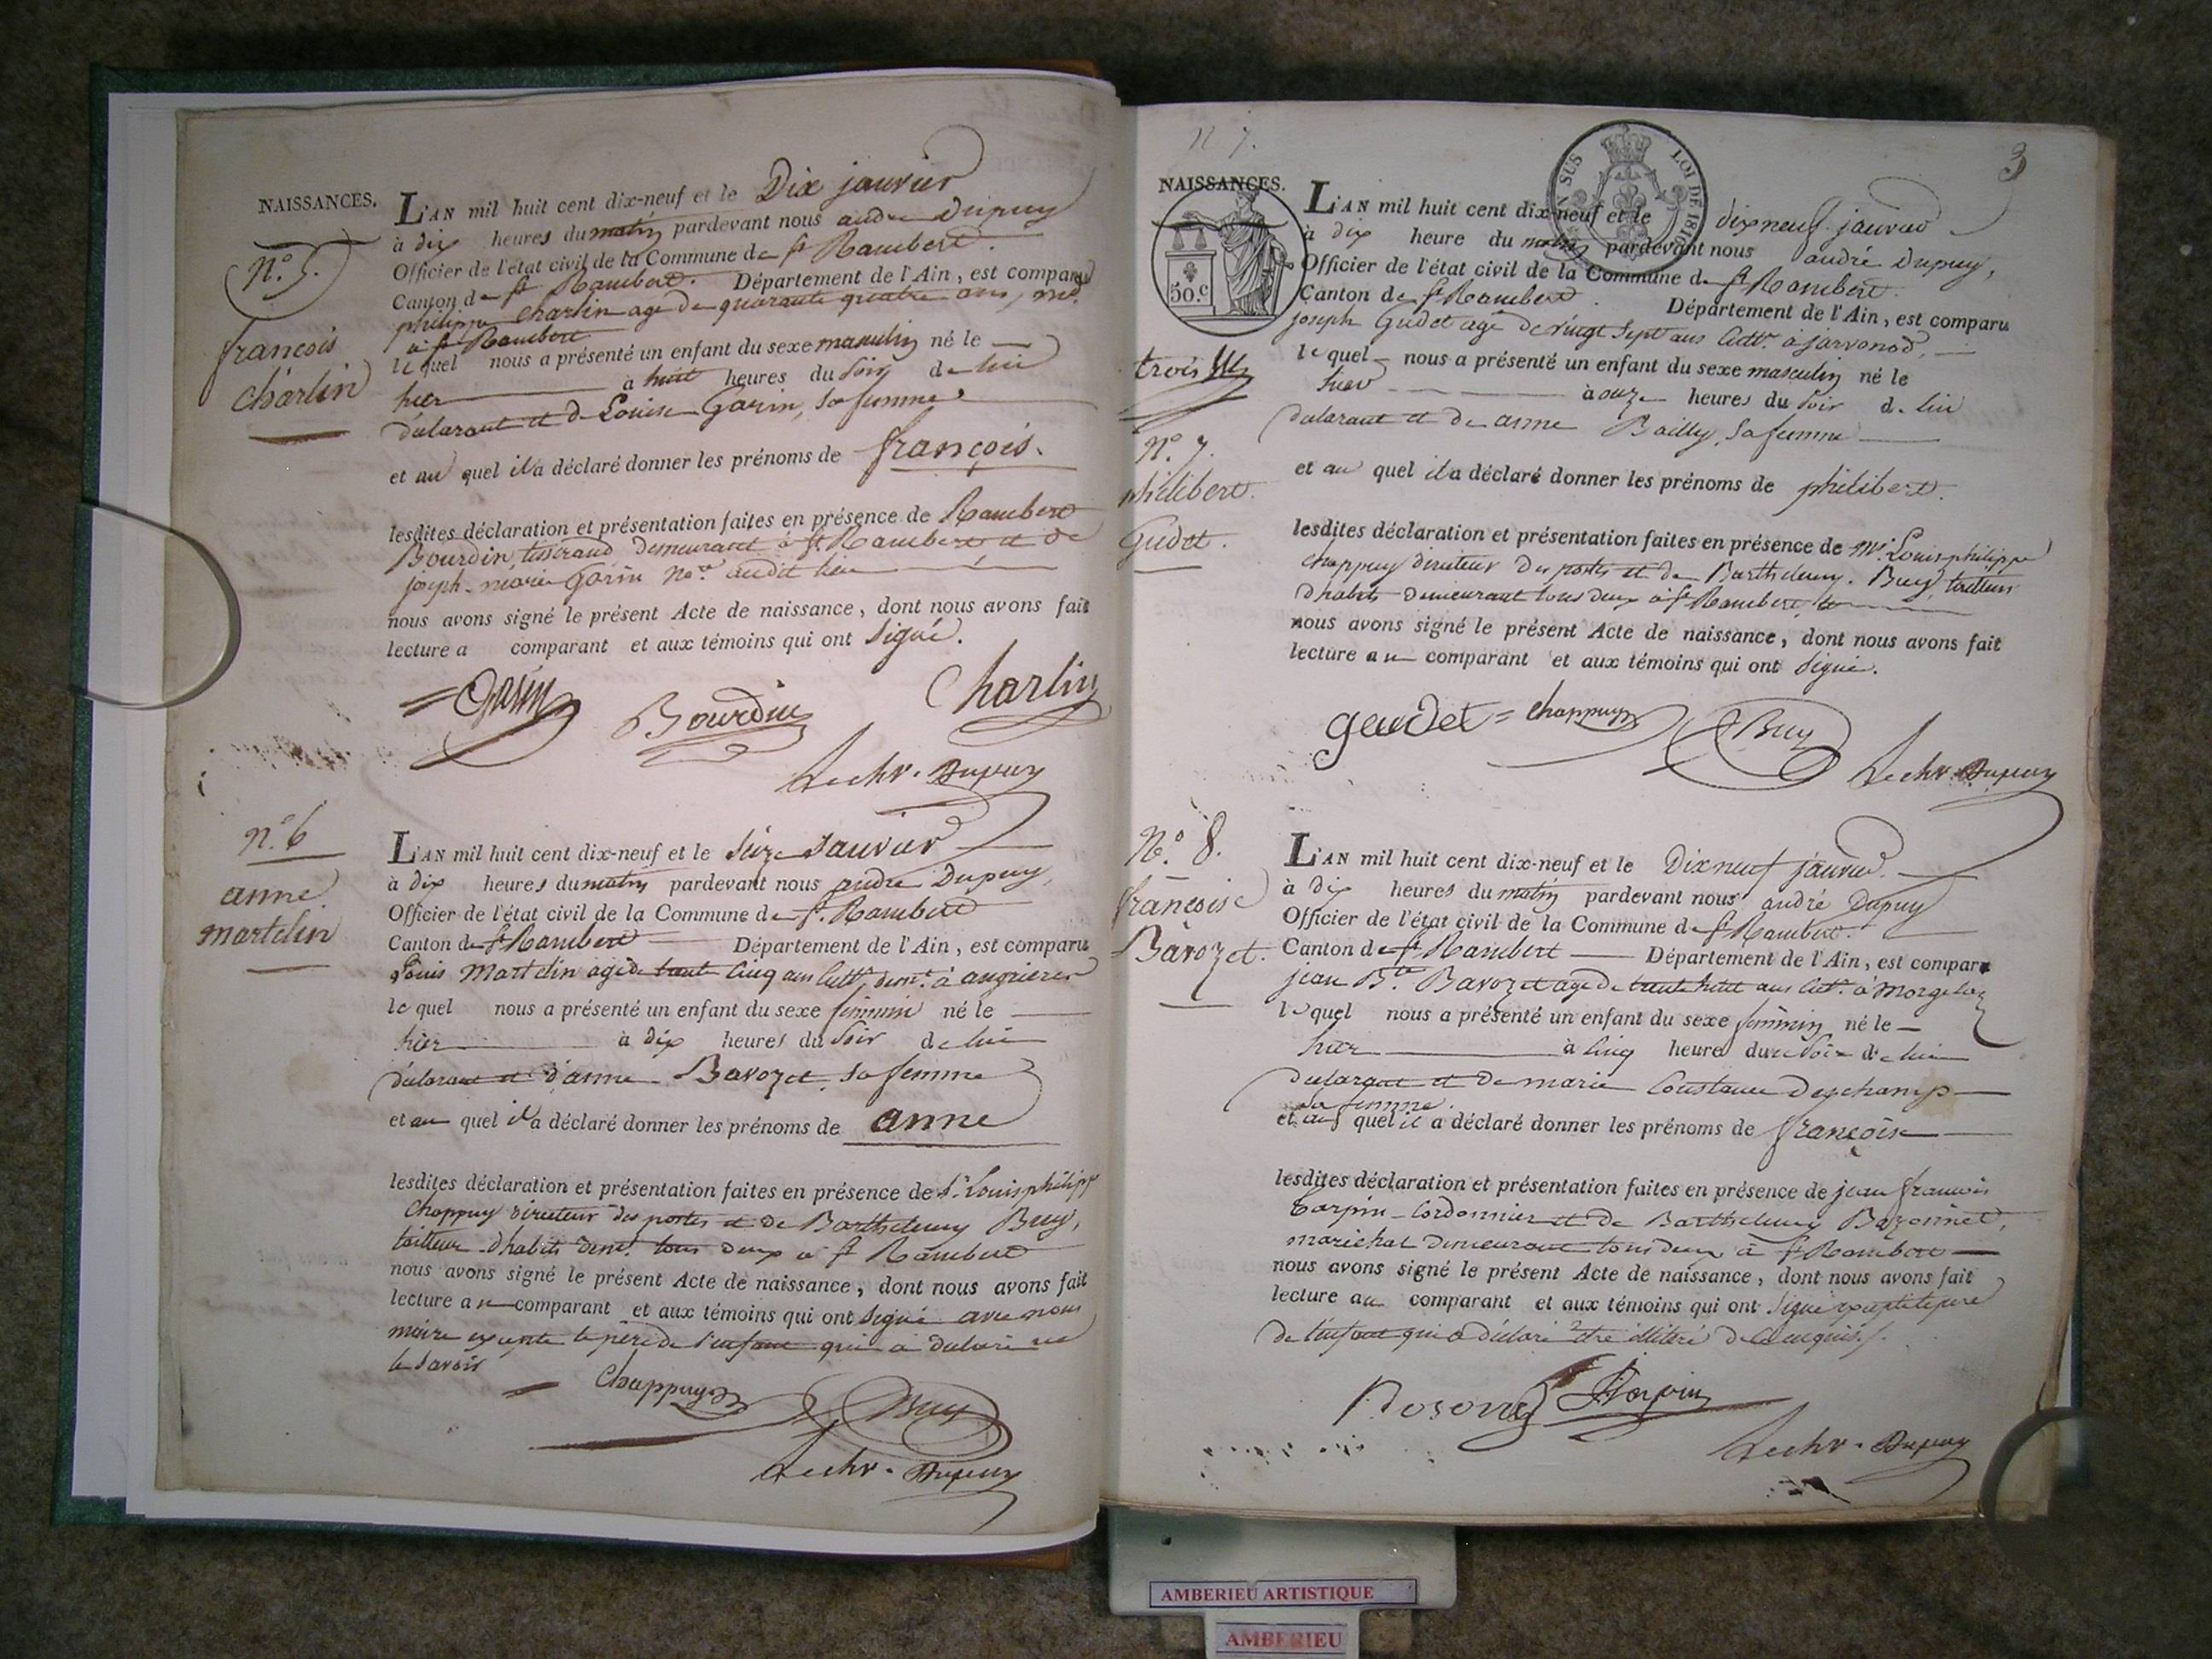 NAISSANCES.
L'AN mil huit cent dix-neuf et le Dix janvier
à dix heures du matin pardevant nous andré Dupuy
Officier de l'état civil de la Commune de St Rambert.
Canton de St Rambert. Département de l'Ain, est comparu
philippe charlin agé de quarante quatre ans,
à St Rambert
lequel nous a présenté un enfant du sexe masculin né le
hier à huit heures du soir de lui
déclarant et de Louise Garin, sa femme
et au quel il a déclaré donner les prénoms de françois.
lesdites déclaration et présentation faites en présence de Rambert
Bourdin, tisserand demeurant à St Rambert et de
joseph-marie Garin nore audit lieu
nous avons signé le présent Acte de naissance, dont nous avons fait
lecture a comparant et aux témoins qui ont signé.
N.° 5.
francois
charlin
Garin
Bourdin
Charlin
Lechr. Dupuy
n.° 6
anne
martelin
L'AN mil huit cent dix-neuf et le seize Janvier
à dix heures du matin pardevant nous andré Dupuy,
Officier de l'état civil de la Commune de St. Rambert
Canton de St Rambert Département de l'Ain, est comparu
Louis Martelin agé de trente cinq ans cultr. demt. à angrieres
lequel nous a présenté un enfant du sexe féminin né le
hier à dix heures du soir de lui
déclarant et d'anne Bavozet, sa femme
et au quel il a déclaré donner les prénoms de anne
lesdites déclaration et présentation faites en présence de Sr. Louis philippe
Chappuy directeur des postes et de Barthelemy Buy,
tailleur d'habits demt. tous deux à St Rambert
nous avons signé le présent Acte de naissance, dont nous avons fait
lecture au comparant et aux témoins qui ont signé avec nous
maire excepté le père de l'enfant qui a déclaré ne
le savoir
Chappuy
Buy
Lechr. Dupuy
n 7.
3
NAISSANCES.
50.c
LOI DE 181
trois
L'AN mil huit cent dix-neuf et le dix neuf janvier
à dix heure du matin pardevant nous andré Dupuy,
Officier de l'état civil de la Commune de St Rambert.
Canton de St Rambert. Département de l'Ain, est comparu
joseph Gudet agé de vingt sept ans cultr. à jarvonod,
lequel nous a présenté un enfant du sexe masculin né le
hier à onze heures du soir de lui
déclarant et de anne Bailly, sa femme
et au quel il a déclaré donner les prénoms de philibert.
n.° 7.
philibert
Gudet.
lesdites déclaration et présentation faites en présence de Mr. Louis philippe
chappuy directeur des postes et de Barthelemy. Buy, tailleur
d'habits demeurant tous deux à St Rambert
nous avons signé le présent Acte de naissance, dont nous avons fait
lecture au comparant et aux témoins qui ont signé.
geudet
chappuy
Buy
Lechr. Dupuy
N.° 8.
francoise
Bavozet.
L'AN mil huit cent dix-neuf et le Dixneuf janvier.
à dix heures du matin pardevant nous andré Dupuy
Officier de l'état civil de la Commune de St Rambert.
Canton de St Rambert Département de l'Ain, est comparu
jean Bte. Bavozet agé de trente huit ans cultr. à Morgelaz
lequel nous a présenté un enfant du sexe féminin né le
hier à cinq heures du soir de lui
déclarant et de marie Constance Deschamp
sa femme.
et au quel il a déclaré donner les prénoms de françoise
lesdites déclaration et présentation faites en présence de jean francois
Carpin Cordonnier et de Barthelemy Bazonnet,
maréchal demeurant tous deux à St Rambert
nous avons signé le présent Acte de naissance, dont nous avons fait
lecture au comparant et aux témoins qui ont signé excepté le père
de l'enfant qui a déclaré être illitéré de ce enquis
Lechr. Dupuy
AMBERIEU ARTISTIQUE
AMBERIEU